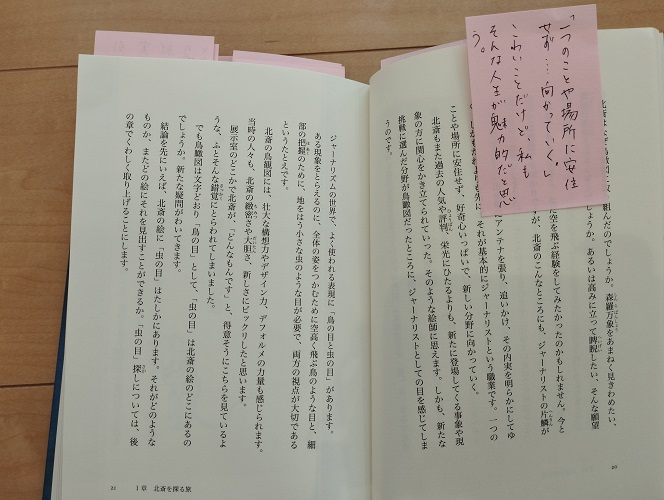 「一つのことや場所に安住
せず…向かっていく。」
こわいことだけど、私も
そんな人生が魅力的だと思
う。
組んだのでしょうか。森羅万象をあまねく見きわめたい、
しょうか。あるいは高みに立って睥睨したい、そんな願望
た空を飛ぶ経験をしてみたかったのかもしれません。今と
が、北斎のこんなところにも、ジャーナリストの片鱗が
アンテナを張り、追いかけ、その内実を明らかにしてゆ
それが基本的にジャーナリストという職業です。一つの
ことや場所に安住せず、好奇心いっぱいで、新しい分野に向かっていく。
北斎もまた過去の人気や評判、栄光にひたるよりも、新たに登場してくる事象や現
象の方に関心をかき立てられていった。そのような絵師に思えます。しかも、新たな
挑戦に選んだ分野が鳥瞰図だったところに、ジャーナリストとしての目を感じてしま
うのです。
20
ジャーナリズムの世界で、よく使われる表現に「鳥の目と虫の目」があります。
ある現象をとらえるのに、全体の姿をつかむために空高く飛ぶ鳥のような目と、細
部の把握のために、地をはう小さな虫のような目が必要で、両方の視点が大切である
というたとえです。
北斎の鳥瞰図には、壮大な構想力やデザイン力、デフォルメの力量も感じられます。
当時の人々も、北斎の緻密さや大胆さ、新しさにビックリしたと思います。
展示室のどこかで北斎が、「どんなもんです」と、得意そうにこちらを見ているよ
うな、ふとそんな錯覚にとらわれてしまいました。
でも鳥瞰図は文字どおり「鳥の目」として、「虫の目」は北斎の絵のどこにあるの
でしょうか。新たな疑問がわいてきます。
結論を先にいえば、北斎の絵に「虫の目」はたしかにあります。それがどのような
ものか、またどの絵にそれを見出すことができるか。「虫の目」探しについては、後
の章でくわしく取り上げることにします。
21　1章　北斎を探る旅